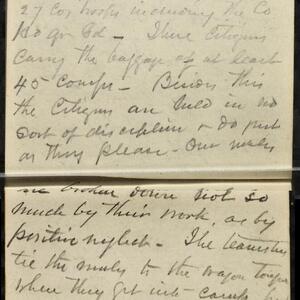 27 Co's troops including the Co
Hd qr Gd – These Citizens
carry the baggage of at least
45 comps – Besides this
the Citizens are held in no
sort of discipline & do just
as they please – Our mules
are broken down not so
much by their work, as by
positive neglect – The teamsters
tie the mules to the wagon tongue
when they get into camp